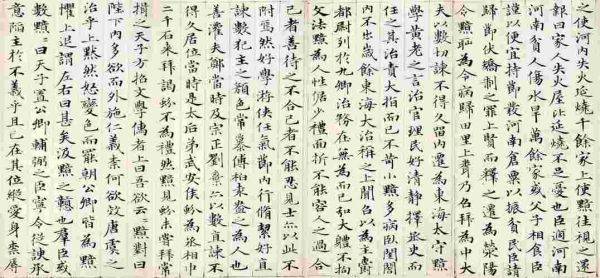 之使河內失火延燒千餘家上使黯往視之還
報曰家人失火屋比延燒不足憂也臣過河南
河南貧人傷水旱萬餘家或父子相食臣
謹以便宜持節發河南倉粟以振貧民臣請
歸節伏矯制之罪上賢而釋之遷為滎陽
令黯恥為令病歸田里上聞乃召拜為中大
夫以數切諫不得久留內遷為東海太守黯
學黃老之言治官理民好清靜擇丞史而
任之其治責大指而已不苛小黯多病臥閨閤
內不出歲餘東海大治稱之上聞召以為主爵
都尉列於九卿治務在無為而已弘大體不拘
文法黯為人性倨少禮面折不能容人之過合
己者善待之不合己者不能忍見士亦以此不
附焉然好學游俠任氣節內行脩絜好直
諫數犯主之顏色常慕傅柏袁盎之為人也
善灌夫鄭當時及宗正劉棄亦以數直諫不
得久居位當時是太后弟武安侯蚡為丞相中二
千石來拜謁蚡不為禮然黯見蚡未嘗拜常
揖之天子方招文學儒者上曰吾欲云云黯對曰
陛下內多欲而外施仁義柰何欲效唐虞之
治乎上默然怒變色而罷朝公卿皆為黯
懼上退謂左右曰甚矣汲黯之戇也羣臣或
數黯黯曰天子置公卿輔弼之臣寧令從諛承
意陷主於不義乎且已在其位縱愛身柰辱